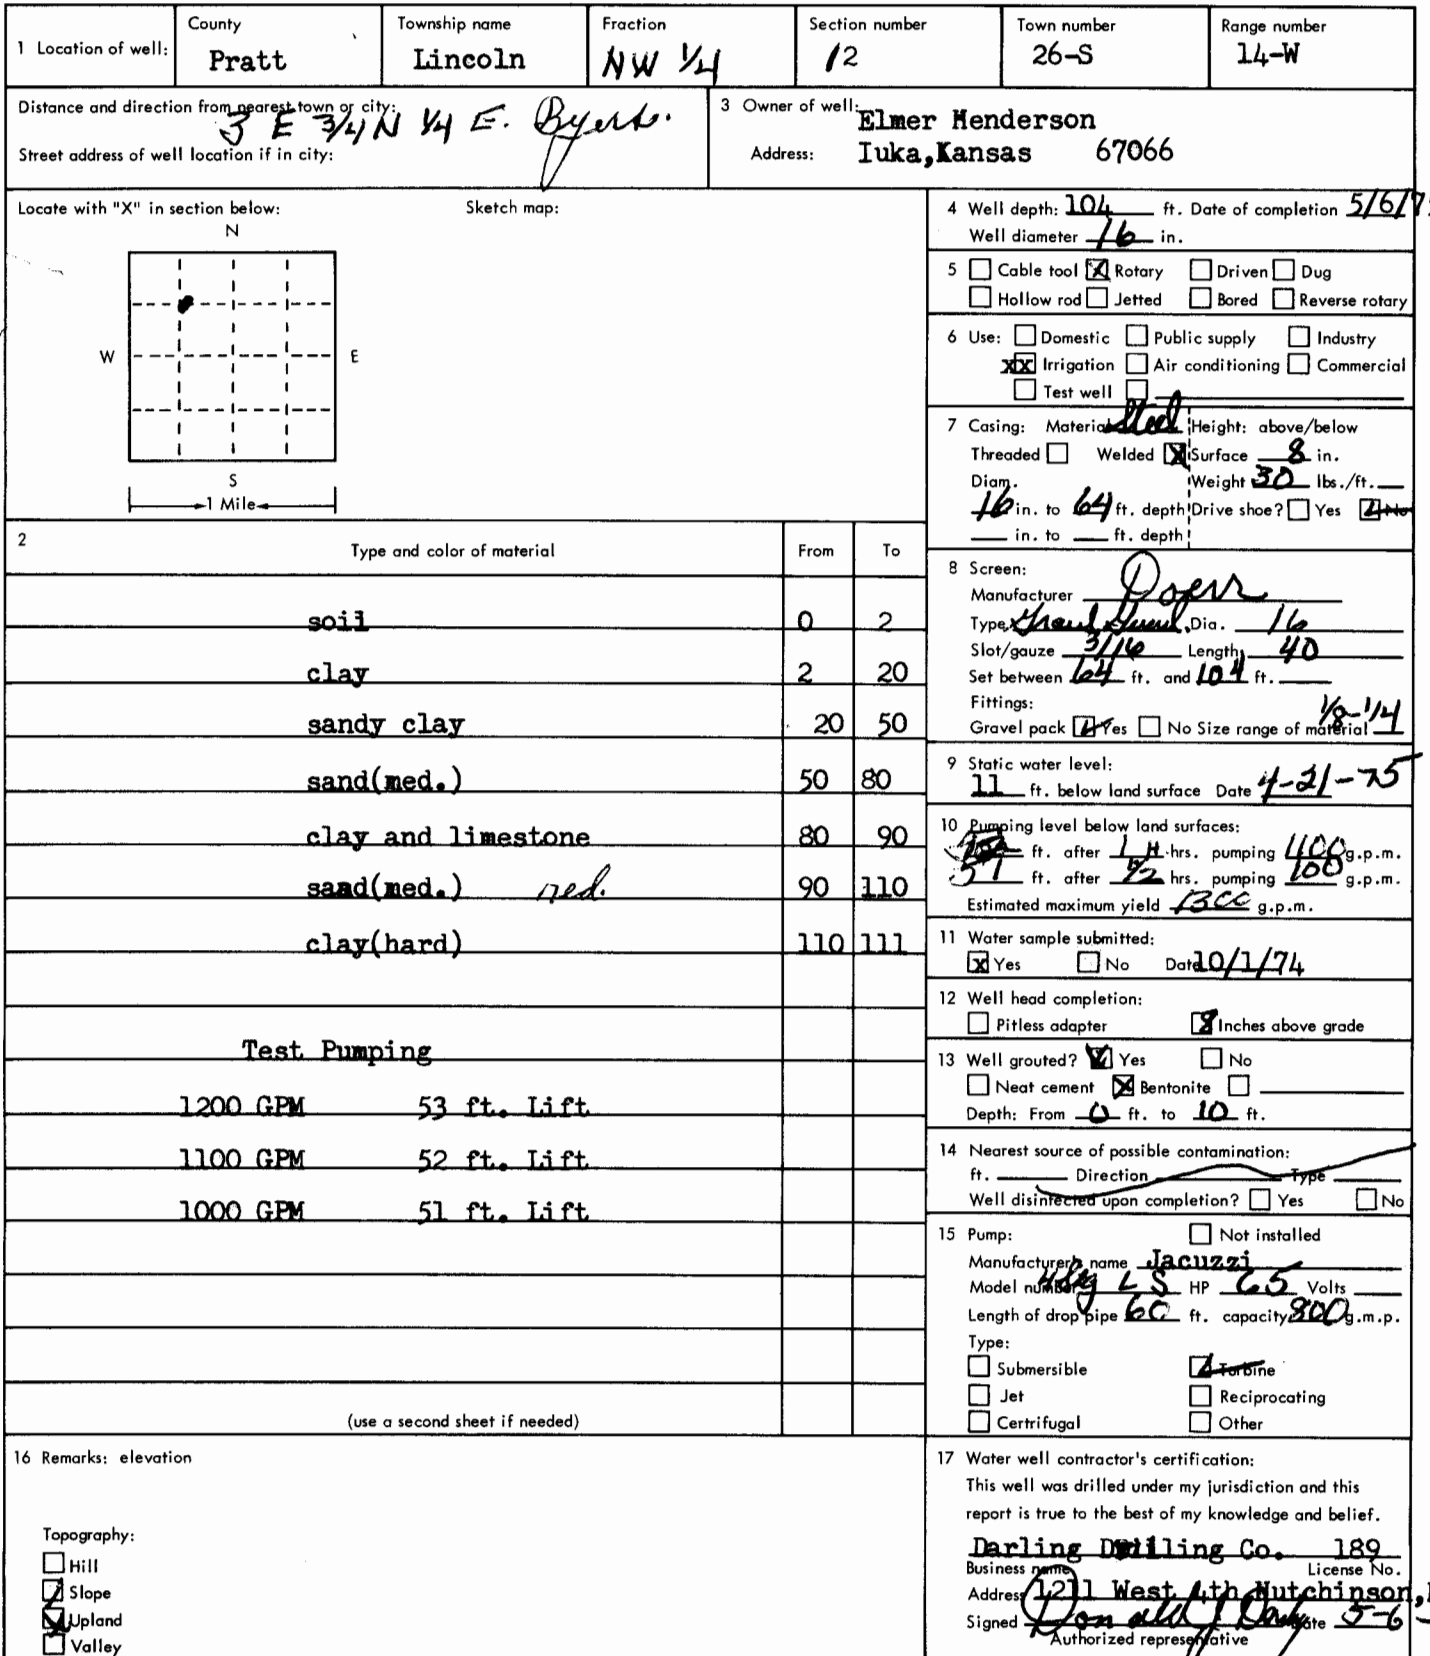 1 Location of well: County Pratt Township name Lincoln Fraction NW 1/4 Section number 12 Town number 26-S Range number 14-W
Distance and direction from nearest town or city: 3 E 3/4 N 1/4 E. Byers.
Street address of well location if in city:
3 Owner of well: Elmer Henderson
Address: Iuka,Kansas 67066
Locate with "X" in section below: Sketch map:
N
W E
S
1 Mile
2 Type and color of material From To
soil 0 2
clay 2 20
sandy clay 20 50
sand(med.) 50 80
clay and limestone 80 90
sand(med.) red. 90 110
clay(hard) 110 111
Test Pumping
1200 GPM 53 ft. Lift
1100 GPM 52 ft. Lift
1000 GPM 51 ft. Lift
(use a second sheet if needed)
4 Well depth: 104 ft. Date of completion 5/6/7
Well diameter 16 in.
5 Cable tool X Rotary Driven Dug
Hollow rod Jetted Bored Reverse rotary
6 Use: Domestic Public supply Industry
XX Irrigation Air conditioning Commercial
Test well
7 Casing: Material Steel Height: above/below
Threaded Welded X Surface 8 in.
Diam. Weight 30 lbs./ft.
16 in. to 64 ft. depth Drive shoe? Yes No
in. to ft. depth
8 Screen:
Manufacturer Doerr
Type Dia. 16
Slot/gauze 3/16 Length 40
Set between 64 ft. and 104 ft.
Fittings: 1/8-1/4
Gravel pack Yes No Size range of material
9 Static water level:
11 ft. below land surface Date 4-21-75
10 Pumping level below land surfaces:
ft. after 1 hrs. pumping 400 g.p.m.
ft. after 1/2 hrs. pumping g.p.m.
Estimated maximum yield 1300 g.p.m.
11 Water sample submitted:
X Yes No Date 10/1/74
12 Well head completion:
Pitless adapter 8 Inches above grade
13 Well grouted? Yes No
Neat cement X Bentonite
Depth: From 0 ft. to 10 ft.
14 Nearest source of possible contamination:
ft. Direction Type
Well disinfected upon completion? Yes No
15 Pump: Not installed
Manufacturer's name Jacuzzi
Model number L S HP 65 Volts
Length of drop pipe 60 ft. capacity 800 g.m.p.
Type:
Submersible Turbine
Jet Reciprocating
Certrifugal Other
16 Remarks: elevation
Topography:
Hill
Slope
Upland
Valley
17 Water well contractor's certification:
This well was drilled under my jurisdiction and this
report is true to the best of my knowledge and belief.
Darling Drilling Co. 189
Business name License No.
Address 1211 West 4th Hutchinson,
Signed Donald Date 5-6
Authorized representative